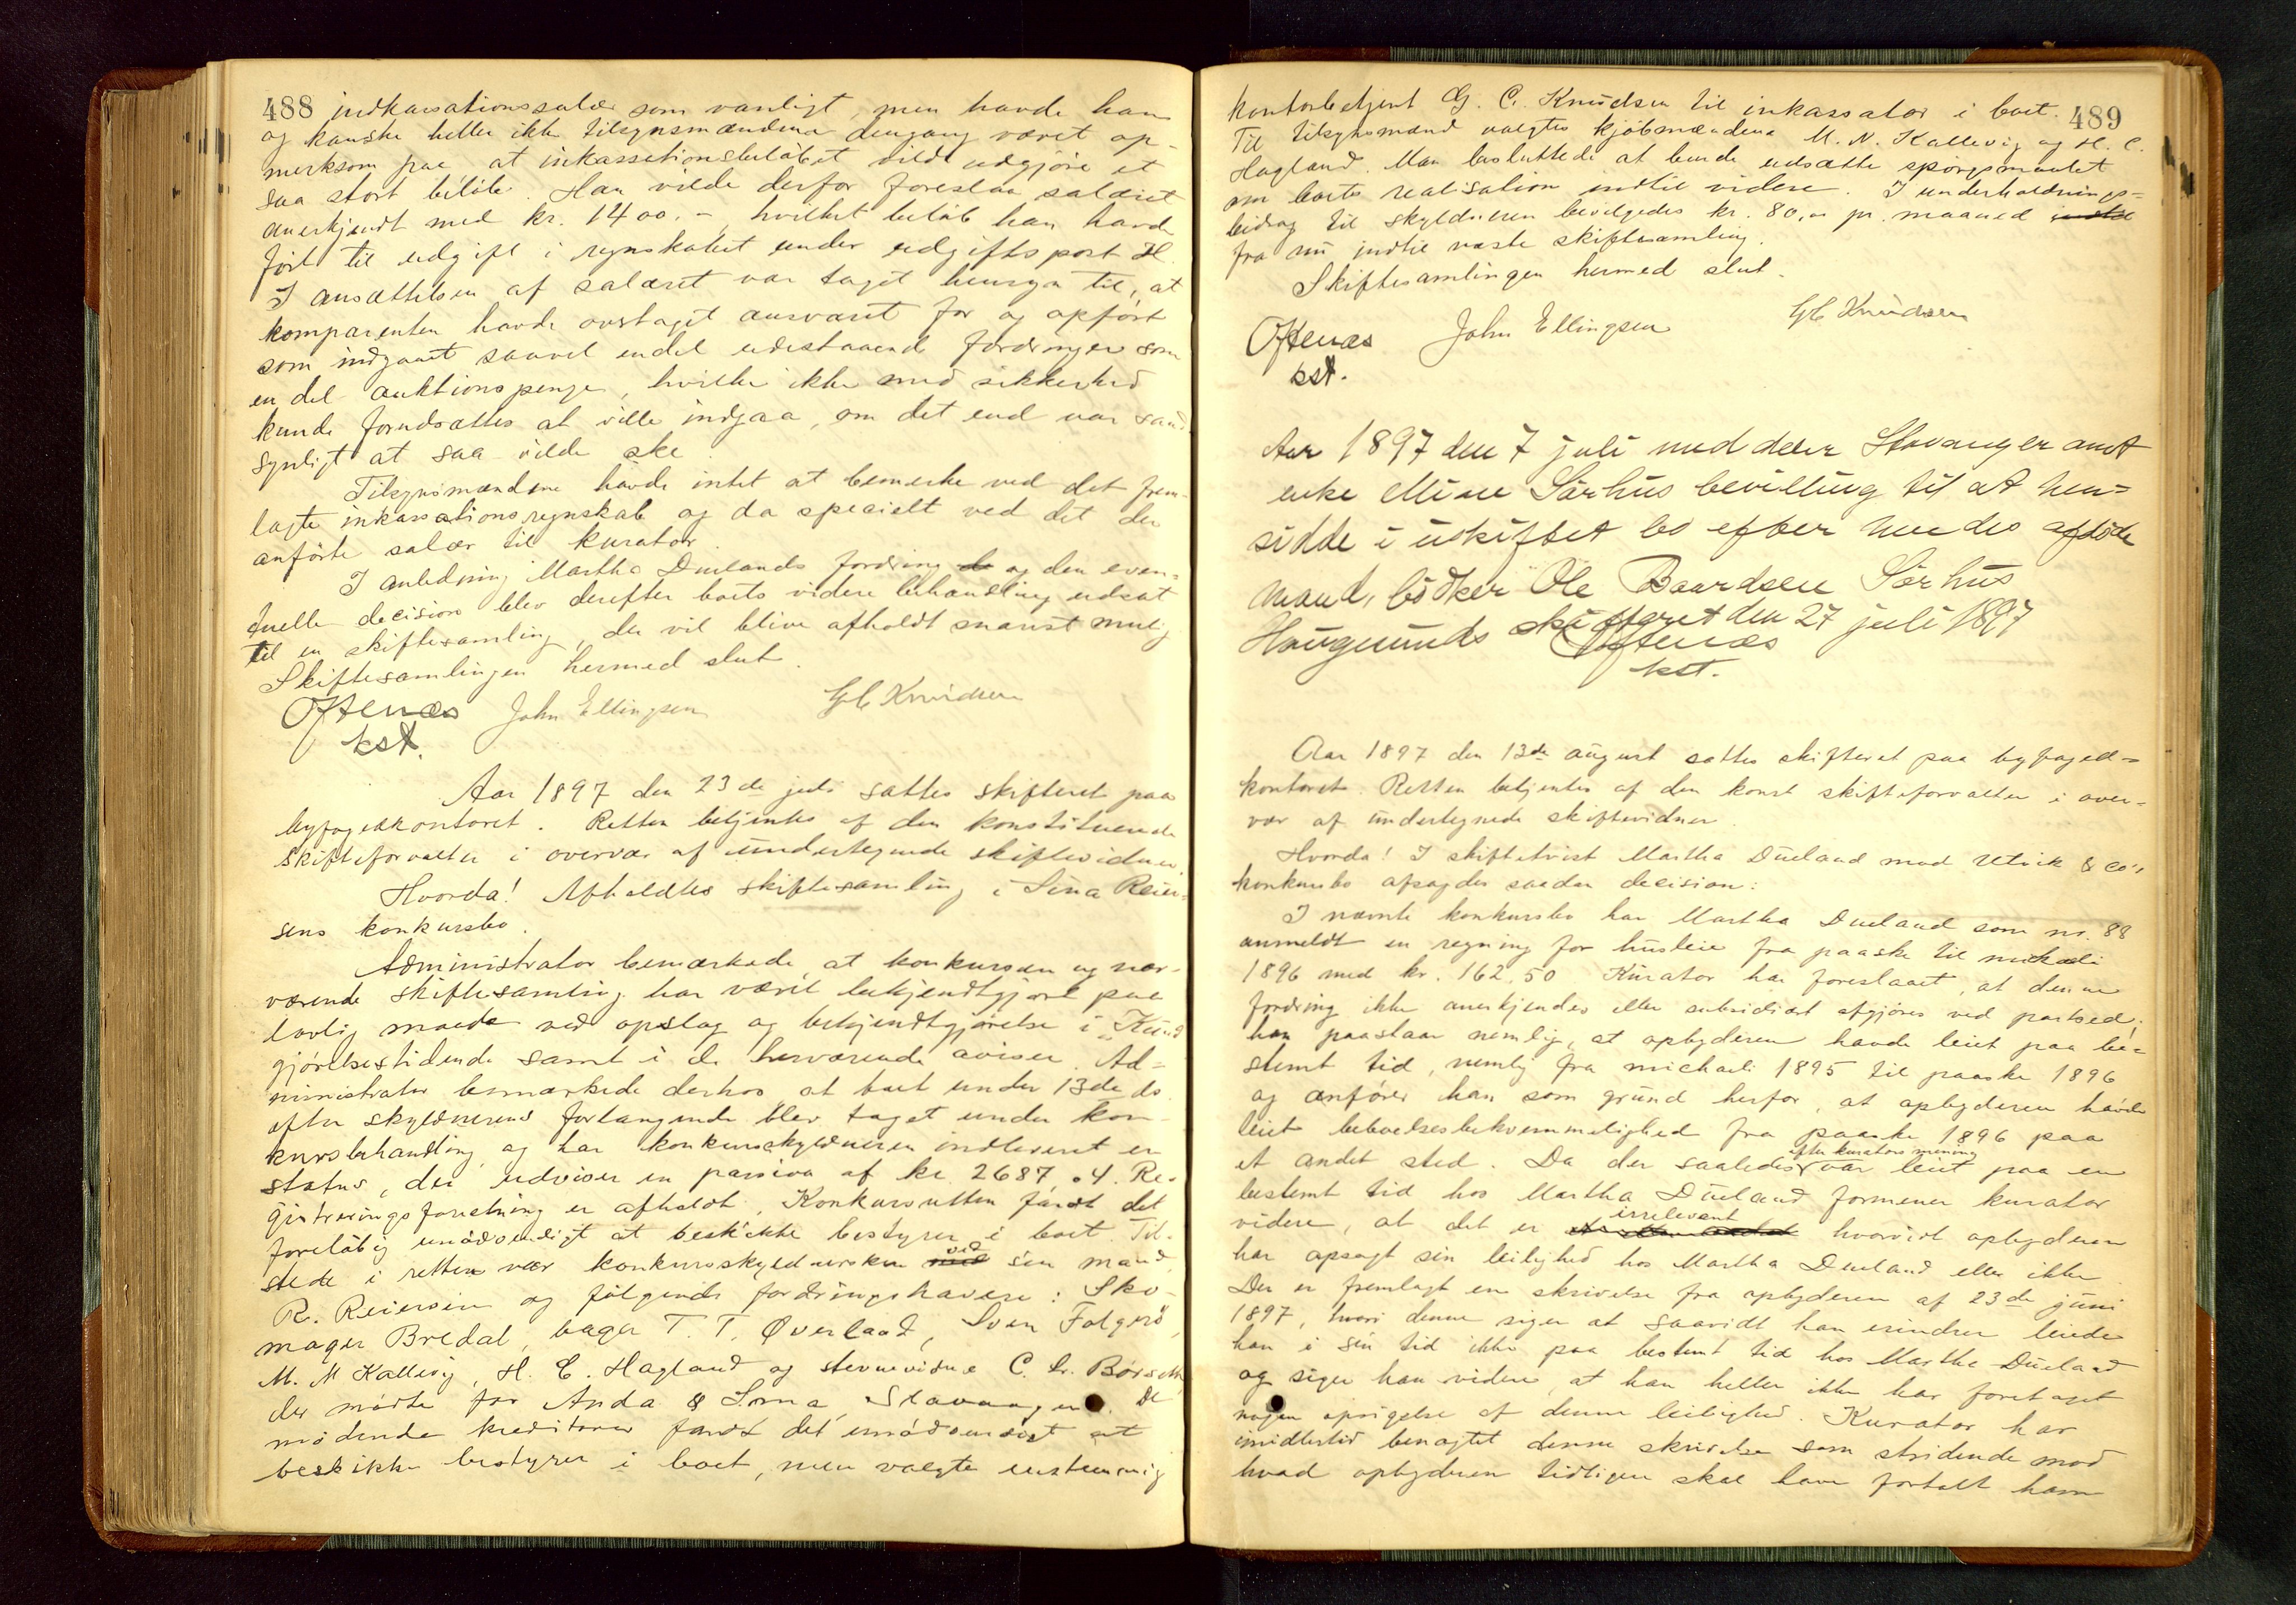 488 indkassationssalær som vanligt, men havde han
og kanske heller ikke tilsynsmændene dengang været op-
merksom paa at inkassationsbeløbet vilde udgjøre et
saa stort beløb. Han vilde derfor foreslaa salæret
anerkjendt med kr. 1400.-, hvilket beløb han havde
ført til udgift i regnskabet under udgiftspost H.
I ansættelsen af salæret var taget hensyn til, at
komparenten havde overtaget ansvaret for og opført
som indgaaet saavel endel udestaaende fordringer som
en del auktionspenge, hvilke ikke med sikkerhed
kunde forudsættes at ville indgaa, om det end var sand-
synligt at saa vilde ske.
Tilsynsmændene havde intet at bemerke ved det frem-
lagte inkassationsregnskab og da specielt ved det der
anførte salær til kurator.
I anledning Martha Duelands fordring og den even-
tuelle decision blev derefter boets videre behandling udsat
til en skiftesamling, der vil blive afholdt snarest mulig
Skiftesamlingen hermed slut.
Oftenæs John Ellingsen GC Knudsen
kst.
Aar 1897 den 23de juli sattes skifteret paa
byfogedkontoret. Retten betjentes af den konstituerede
skifteforvalter i overvær af undertegnede skiftevidner.
Hvorda! Afholdtes skiftesamling i Sina Reier-
sens konkursbo.
Administrator bemærkede, at konkursen og nær-
værende skiftesamling har været bekjendtgjort paa
lovlig maade ved opslag og bekjendtgjørelse i Kund-
gjørelsestidende samt i de herværende aviser. Ad-
ministrator bemærkede derhos at boet under 13de ds.
efter skyldnerens forlangende blev taget under kon-
kursbehandling og har konkursskyldneren indleveret en
status, der udviser en passiva af kr. 2687,04. Re-
gistreringsforretning er afholdt. Konkursretten fandt det
foreløbig unødvendigt at beskikke bestyrer i boet. Til-
stede i retten var konkursskyldnersken ved sin mand
R. Reiersen og følgende fordringshavere: Sko-
mager Bredal, bager T. T. Øverland, Sven Folgerö
M. N Kallevig, H. C. Hagland og stevnevidne C. Dr. Børseth,
der mødte for Anda & Lima, Stavanger. De
mødende kreditorer fandt det unødvendigt at
beskikke bestyrer i boet, men valgte enstemmig
489
kontorbetjent G. C. Knudsen til inkassator i boet.
Til tilsynsmænd valgtes kjøbmændene M. N. Kallevig og H. C.
Hagland. Man besluttede at burde udsætte spørgsmaalet
om boets realisation indtil videre. I underholdnings-
bidrag til skyldneren bevilgedes kr. 80,00 pr. maaned indtil
fra nu indtil næste skiftesamling.
Skiftesamlingen hermed slut.
Oftenæs John Ellingsen GC Knudsen
kst.
Aar 1897 den 7 juli meddeler Stavanger amt
enke Mine Sørhus bevilling til at hen-
sidde i uskiftet bo efter hendes afdøde
mand, bødker Ole Baardsen Sørhus
Haugesunds skifteret den 27 juli 1897
Oftenæs
kst.
Aar 1897 den 13de august sattes skifteret paa byfoged-
kontoret. Retten betjentes af den konst skifteforvalter i over-
vær af undertegnede skiftevidner.
Hvorda! I skiftetvist Martha Dueland mod Utvik & Co's
konkursbo afsagdes saadan decision:
I nævnte konkursbo har Martha Dueland som nr. 88
anmeldt en regning for husleie fra paaske til mikaeli
1896 med kr. 162,50 Kurator har foreslaaet, at denne
fordring ikke anerkjendes eller subsidiært afgjøres ved partsed;
han paastaar nemlig, at opbyderen havde leiet paa be-
stemt tid, nemlig fra michaeli 1895 til paaske 1896
og anfører han som grund herfor, at opbyderen havde
leiet beboelsesbekvemmelighed fra paaske 1896 paa
et andet sted. Da der saaledes efter kurators mening var leiet paa en
bestemt tid hos Martha Dueland formener kurator
videre, at det er irrelevant hvorvidt opbyderen
har opsagt sin leilighed hos Martha Dueland eller ikke
Der er fremlagt en skrivelse fra opbyderen af 23de juni
1897, hvori denne siger at saavidt han erindrer leiede
han i sin tid ikke paa bestemt tid hos Martha Dueland
og siger han videre, at han heller ikke har foretaget
nogen opsigelse af denne leilighed. Kurator har
imidlertid benægtet denne skrivelse som stridende mod
hvad opbyderen tidligere skal have fortalt ham